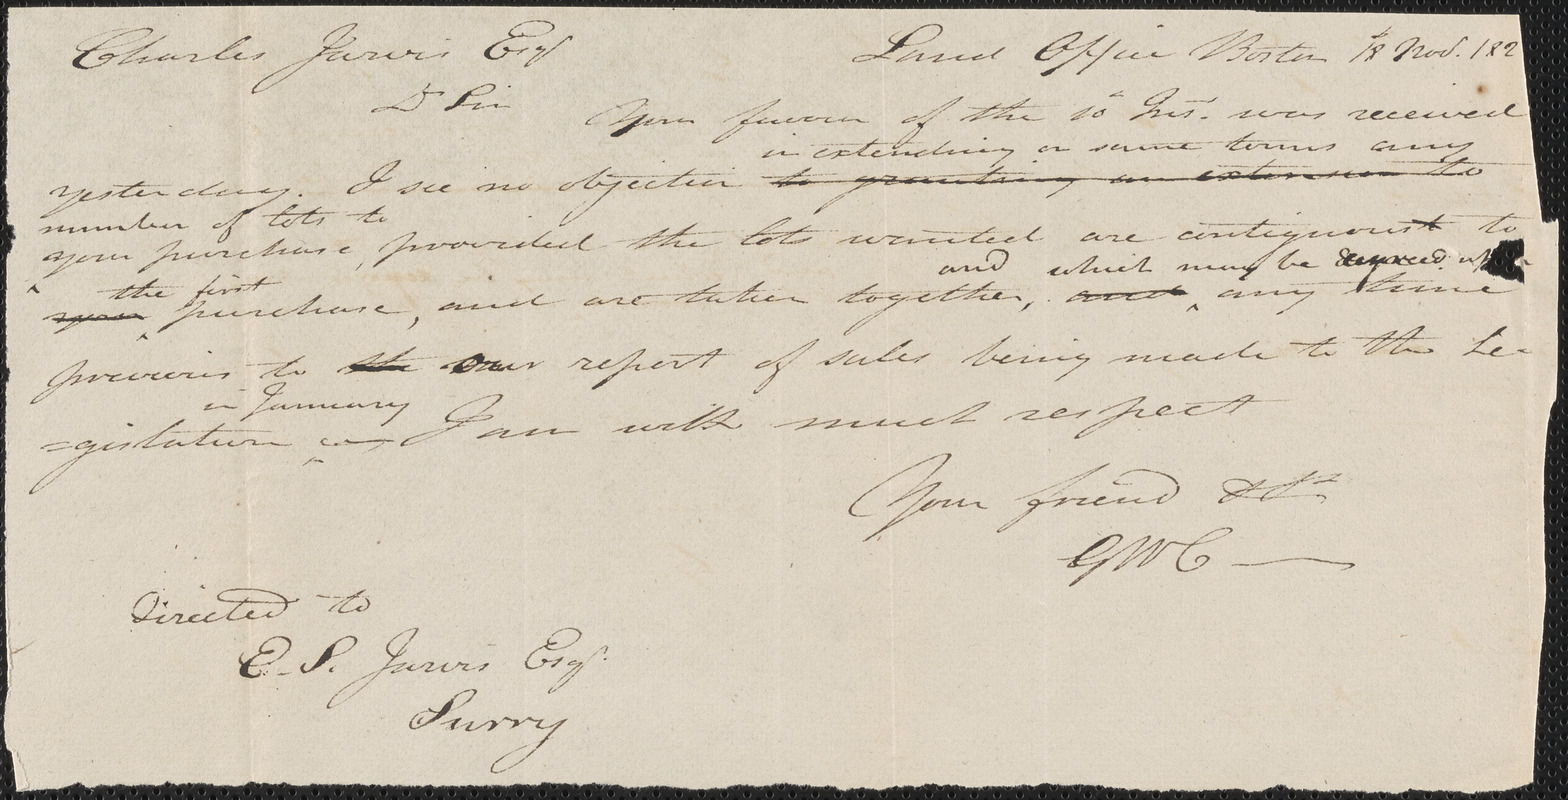 Charles Jarvis Esqr Land Office Boston 18 Nov. 182
Dr Sir Your favour of the 10th Inst. was received
in extending on same terms any
yesterday. I see no objection to granting an extension to
number of lots to
your purchase, provided the lots wanted are contiguous to
and which may be
the first
your purchase, and are taken together, and any time
previous to the our report of sales being made to the Le
in January
=gislature I am with much respect
Your friend &c
GWC
Directed to
E. S. Jarvis Esqr.
Surry